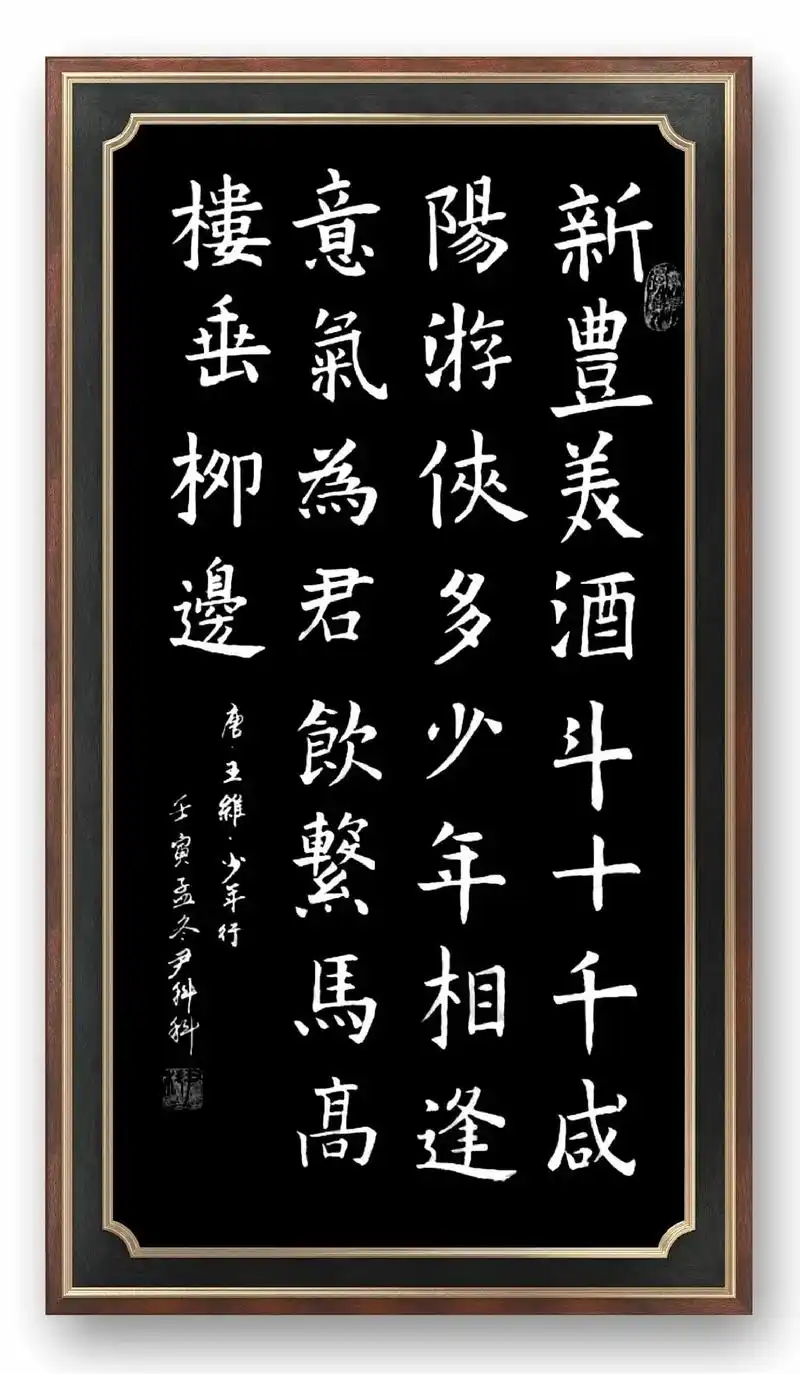 新豊美酒斗十千咸
陽游俠多少年相逢
意氣為君飲繫馬高
樓垂柳邊
唐·王維·少年行
壬寅孟冬尹科科